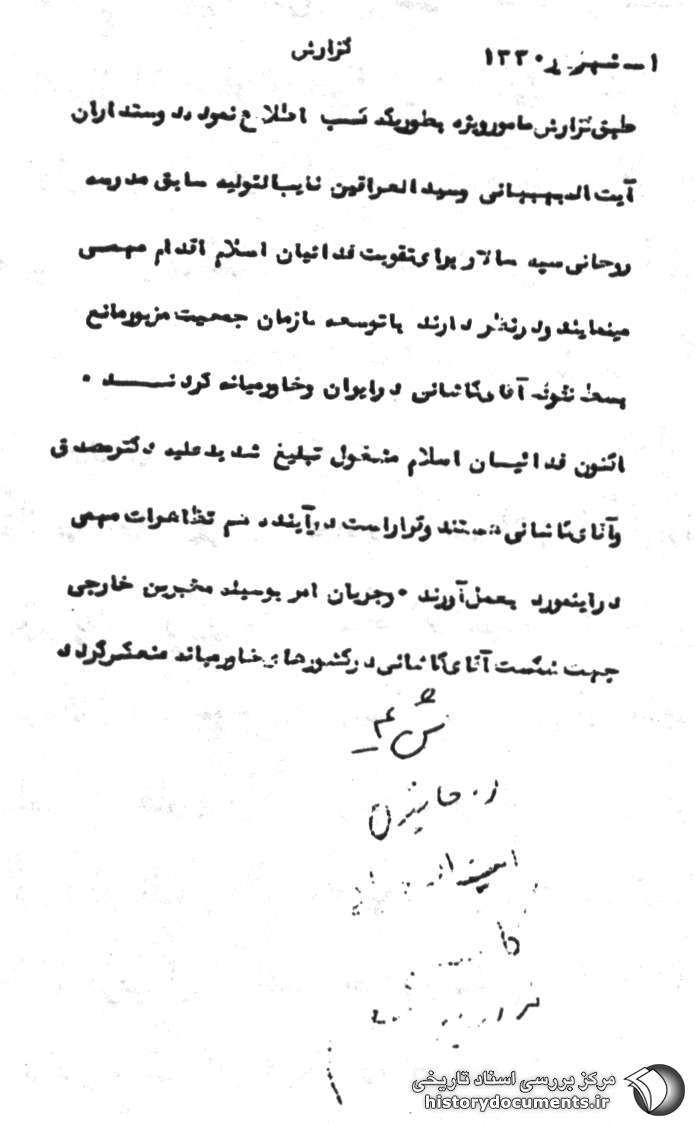 ۱ـ شهریور ۱۳۳۰
گزارش
طبق گزارش مامورویژه بطوریکه کسب اطلاع نمود دوستداران
آیت اله بهبهانی وسیدالعراقین نایب التولیه سابق مدرسه
روحانی سپه سالار برای تقویت فدائیان اسلام اقدام مهمی
مینمایند ودرنظر دارند باتوسعه سازمان جمعیت مزبورمانع
بسط نفوذ آقای کاشانی درایران وخاورمیانه گردنـــد ۰
اکنون فدائیان اسلام مشغول تبلیغ شدیدعلیه دکترمصدق
وآقای کاشانی هستند وقراراست درآینده هم تظاهرات مهمی
دراینمورد بعمل آورند ۰ وجریان امر بوسیله مخبرین خارجی
جهت شکست آقای کاشانی درکشورهای خاورمیانه منعکس گردد
ش ۴
مرکز بررسی اسناد تاریخی
historydocuments.ir